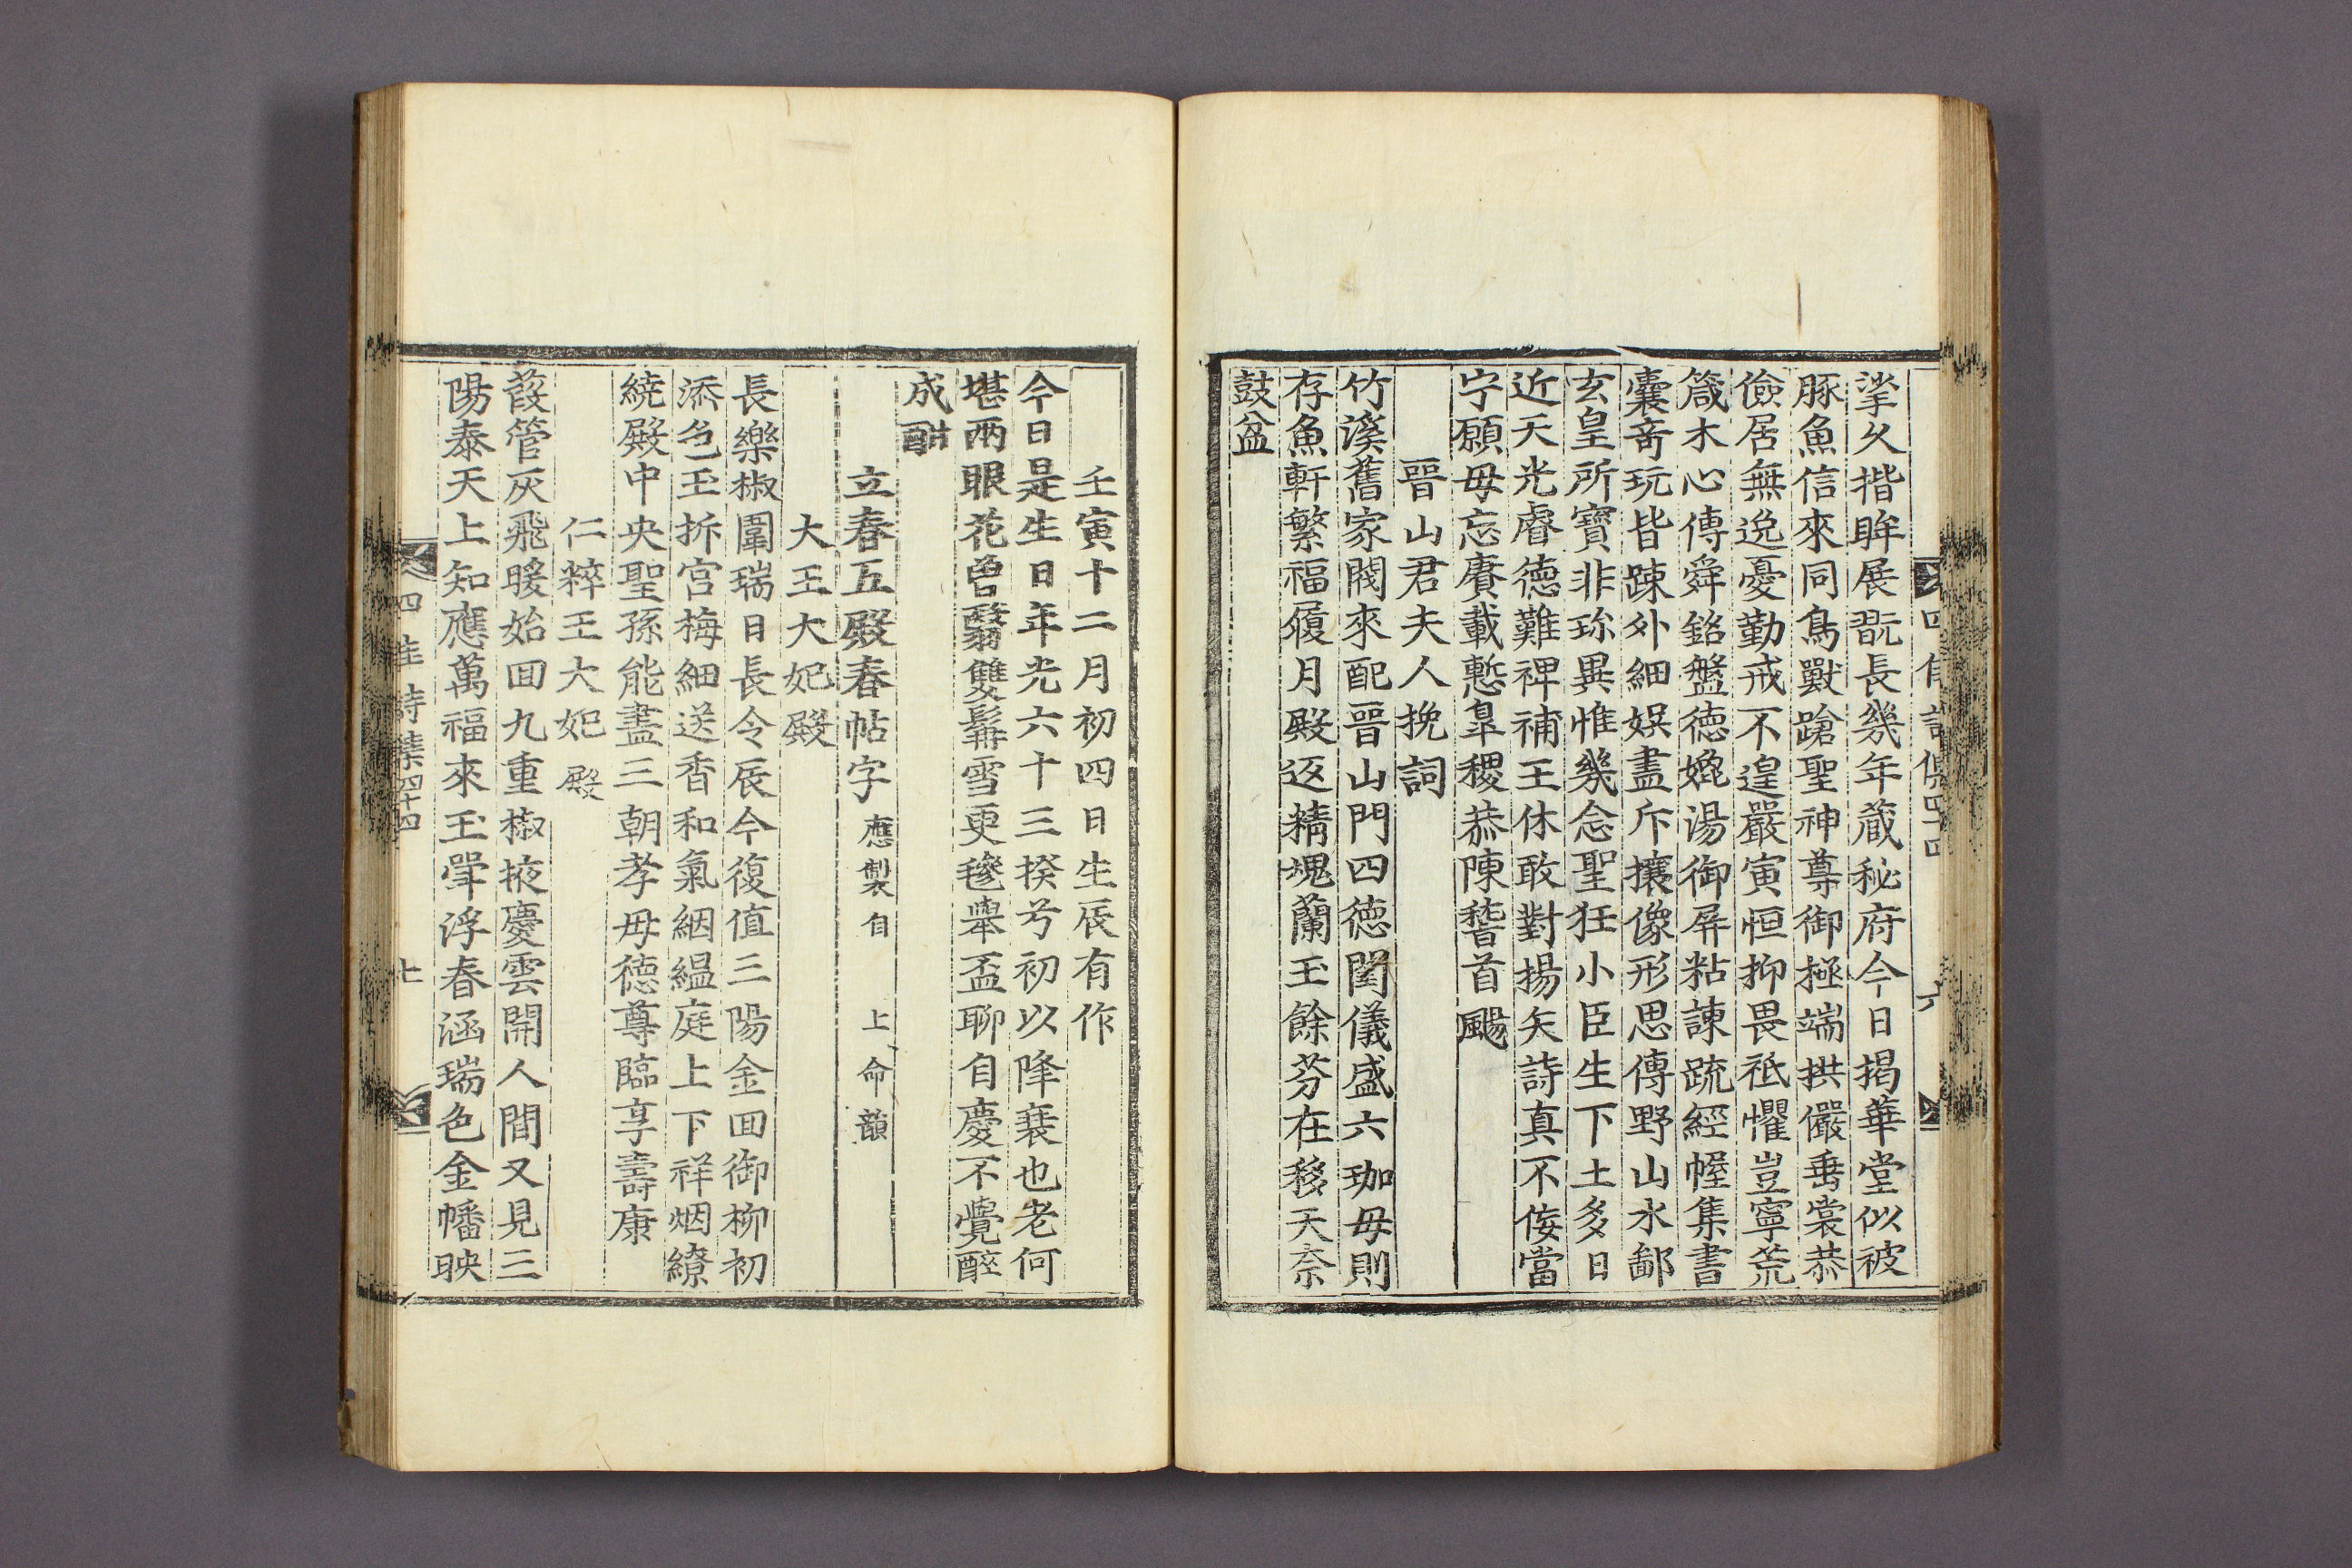 四佳詩集四十四 六
挲久揩眸展翫長幾年藏秘府今日揭華堂似被
豚魚信來同鳥獸蹌聖神尊御極端拱儼垂裳恭
儉居無逸憂勤戒不遑嚴寅恒抑畏祗懼豈寧荒
箴木心傳舜銘盤德媲湯御屛粘諫疏經幄集書
囊奇玩皆踈外細娛盡斥攘像形思傳野山水鄙
玄皇所寶非珎異惟幾念聖狂小臣生下土多日
近天光睿德難裨補王休敢對揚矢詩真不侫當
宁願毋忘賡載慙臯稷恭陳稽首颺
晉山君夫人挽詞
竹溪舊家閥來配晉山門四德閨儀盛六珈毋則
存魚軒繁福履月殿返精魂蘭玉餘芬在移天奈
鼓盆
壬寅十二月初四日生辰有作
今日是生日年光六十三揆兮初以降襄也老何
堪兩眼花曾翳雙鬢雪更毶擧盃聊自慶不覺醉
成酣
立春五殿春帖字 應製自 上命韻
大王大妃殿
長樂椒圍瑞日長令辰今復值三陽金回御柳初
添色玉拆宮梅細送香和氣絪縕庭上下祥烟繚
繞殿中央聖孫能盡三朝孝毋德尊臨享壽康
仁粹王大妃殿
葭管灰飛暖始回九重椒掖慶雲開人間又見三
陽泰天上知應萬福來玉斝浮春涵瑞色金幡映
四佳詩集四十四 七